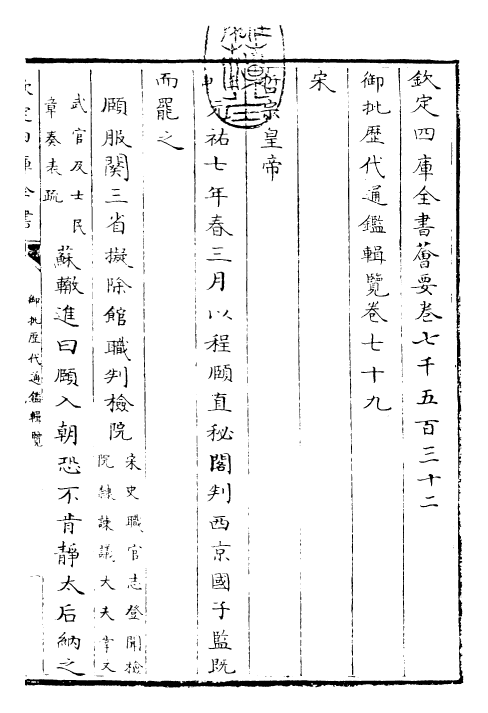 欽定四庫全書薈要卷七千五百三十二
御批歴代通鑑輯覽卷七十九
宋
哲宗皇帝
元祐七年春三月以程頤直秘閣判西京國子監既
而罷之
頤服闋三省擬除館職判檢院
宋史職官志登聞檢
院隸諫議大夫掌文
武官及士民
章奏表疏
蘇轍進曰頤入朝恐不肯靜太后納之
欽定四庫全書
御批歴代通鑑輯覽